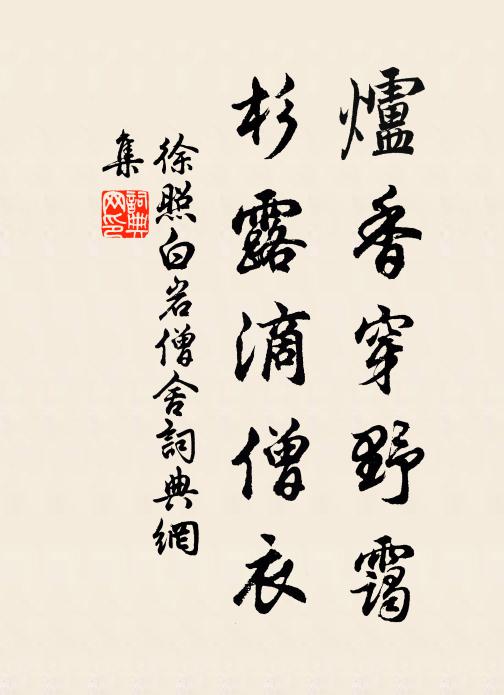 爐香穿野靄
杉露滴僧衣
徐照白岩僧舍詞典網
集
詞典网印